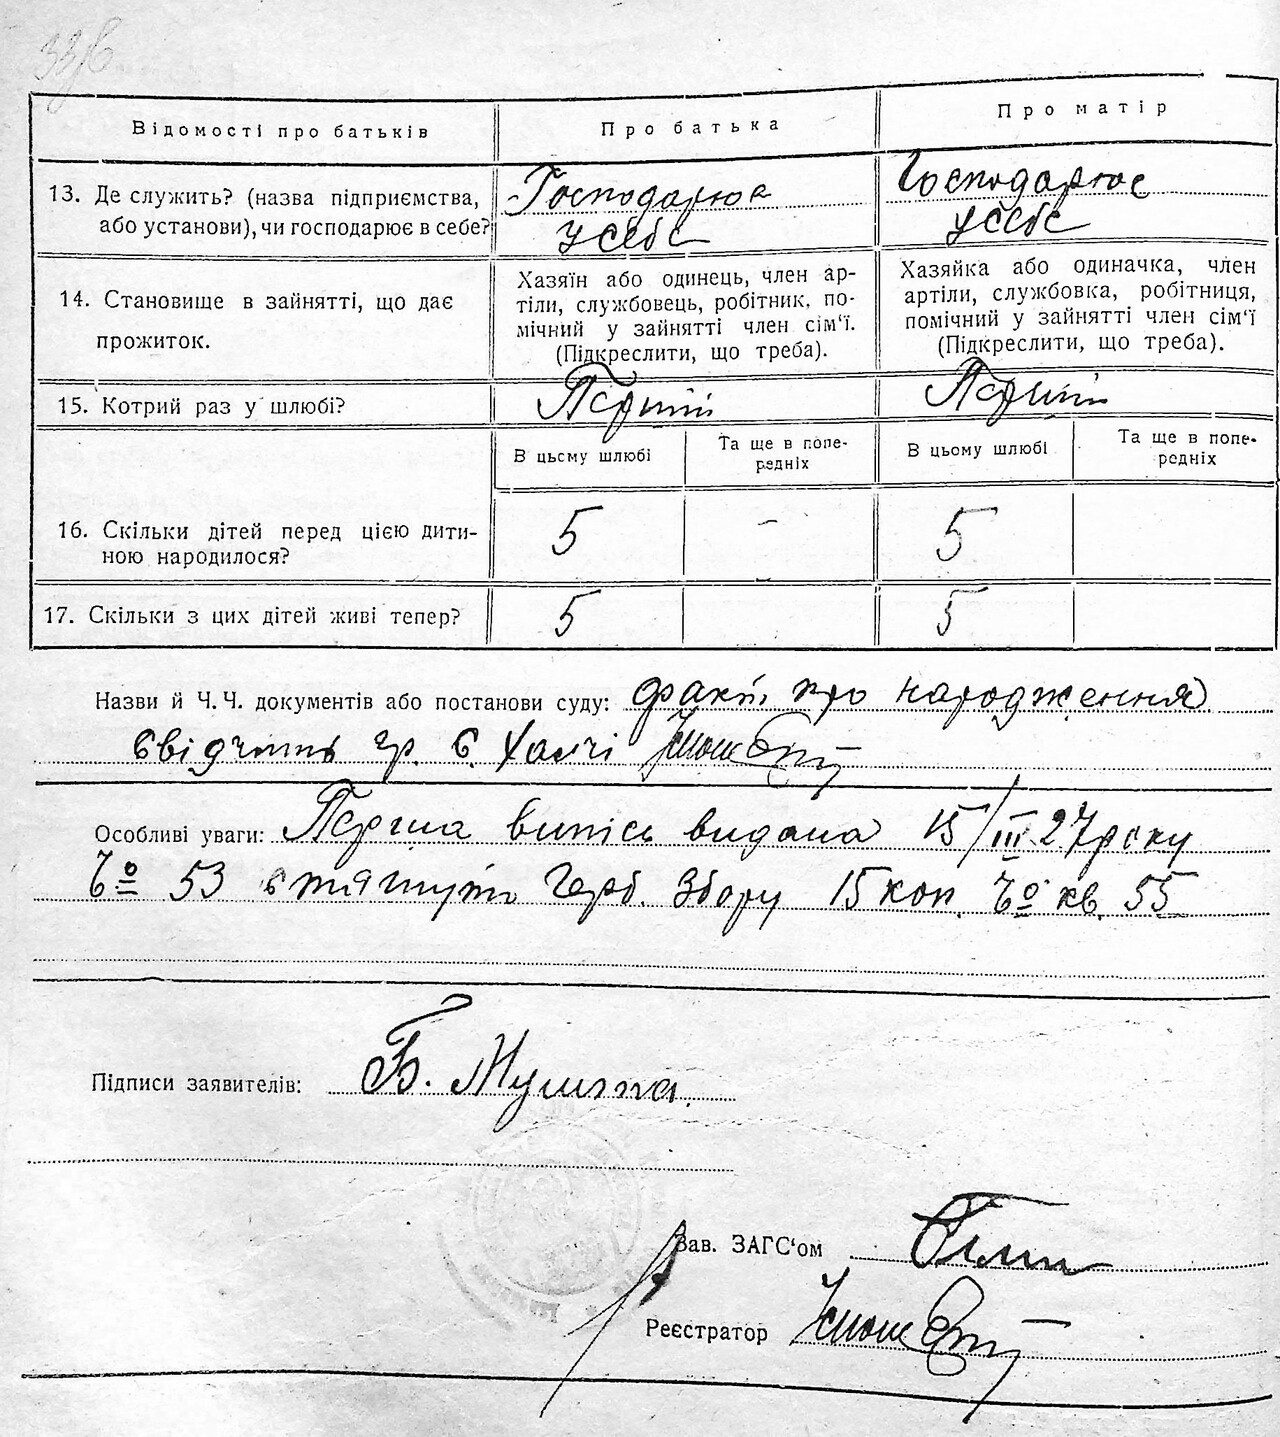 Відомості про батьків
Про батька
Про матір
13. Де служить? (назва підприємства,
або установи), чи господарює в себе?
Господарює
у себе
Господарює
у себе
14. Становище в зайнятті, що дає
прожиток.
Хазяїн або одинець, член ар-
тіли, службовець, робітник, по-
мічний у зайнятті член сім'ї.
(Підкреслити, що треба).
Хазяйка або одиначка, член
артіли, службовка, робітниця,
помічний у зайнятті член сім'ї
(Підкреслити, що треба).
15. Котрий раз у шлюбі?
Перший
Перший
В цьому шлюбі
Та ще в попе-
редніх
В цьому шлюбі
Та ще в попе-
редніх
16. Скільки дітей перед цією дити-
ною народилося?
5
–
5
17. Скільки з цих дітей живі тепер?
5
5
Назви й Ч.Ч. документів або постанови суду: факт про народження
свідчить гр. с.
Особливі уваги: Перша випись видана 15/III 27 року
№ 53 стягнуто Герб. Збору 15 коп. № кв. 55
Підписи заявителів: Б.
Зав. ЗАГС'ом
Реєстратор